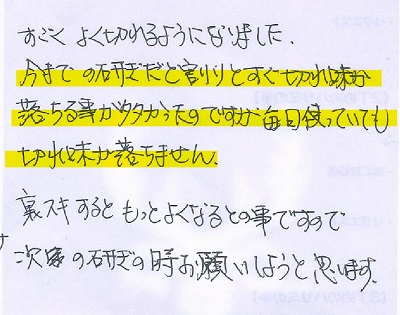 すごく よく切れるようになりました.
今までの研ぎだと割りとすぐ切れ味が
落ちる事が多かったのですが毎日使っていても
切れ味が落ちません.
裏スキするともっとよくなるとの事ですので
次回の研ぎの時お願いしようと思います.